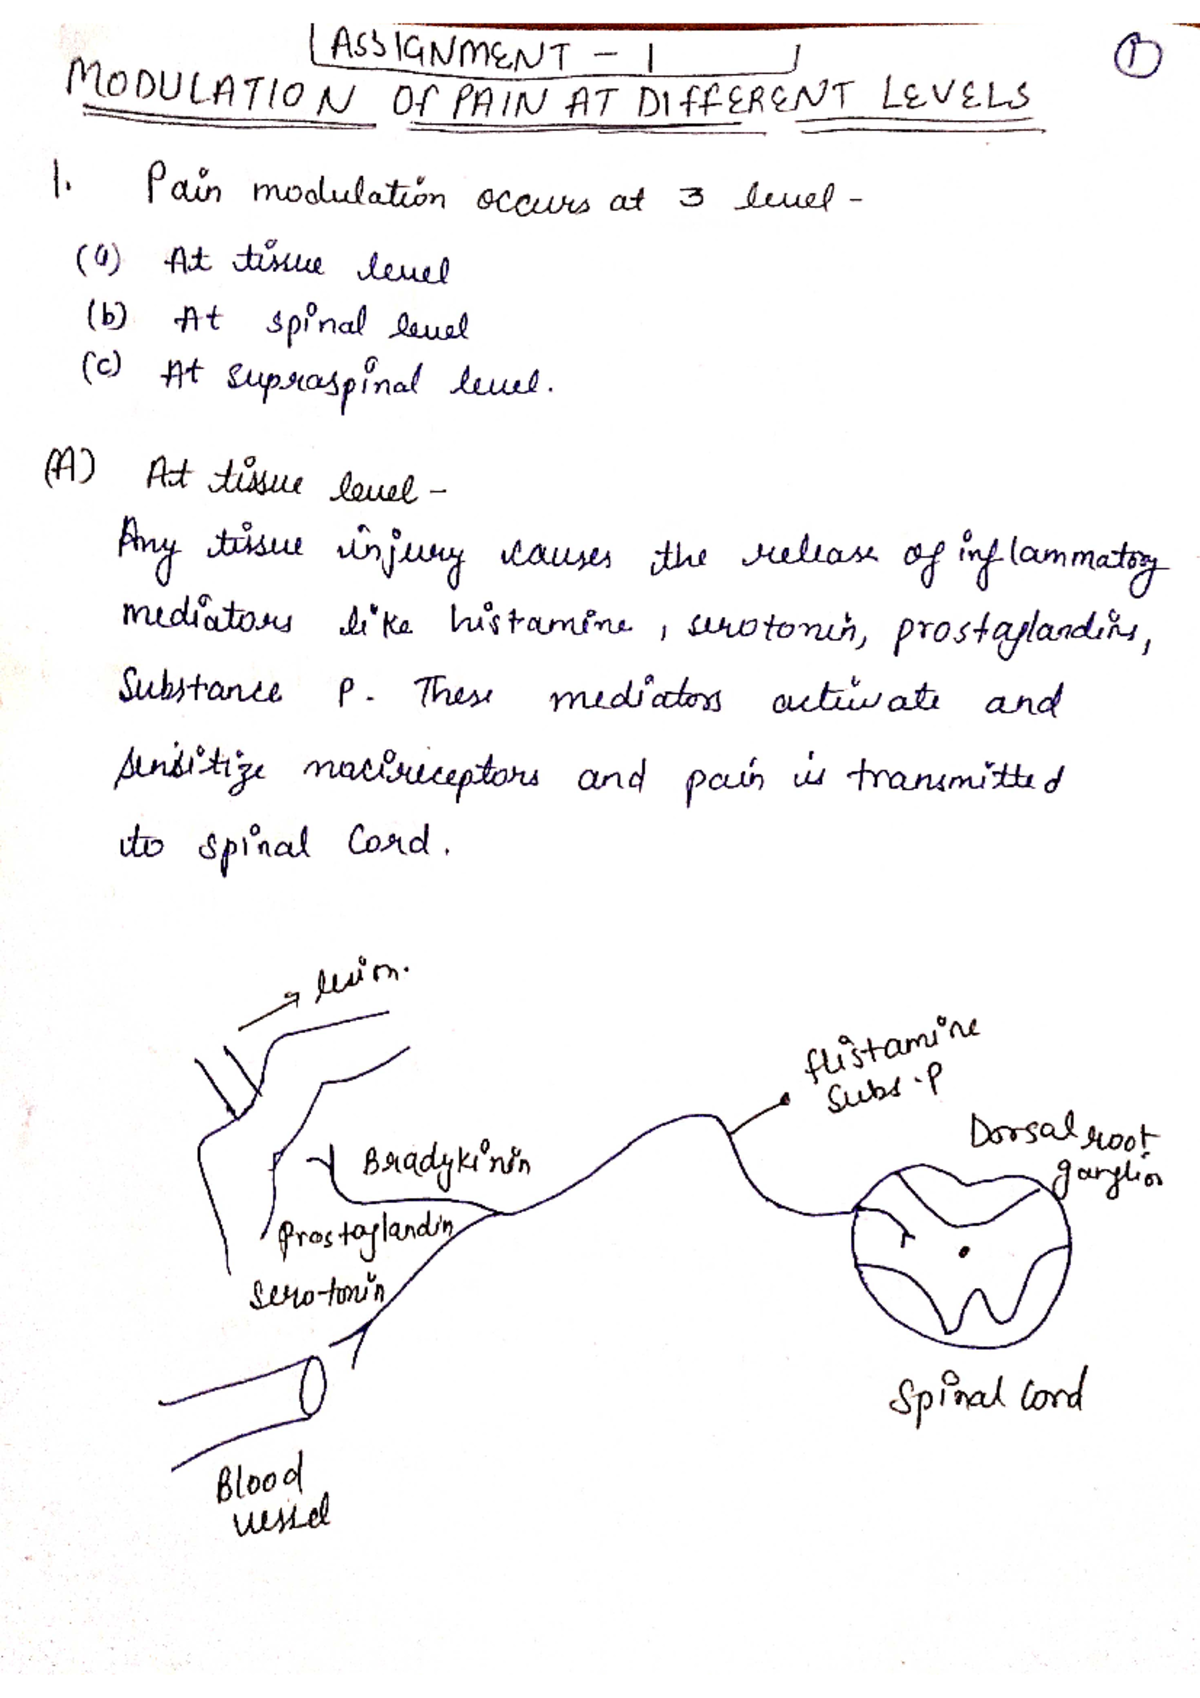 ASSIGNMENT - 1
1
MODULATION OF PAIN AT DIFFERENT LEVELS
1. Pain modulation occurs at 3 level -
(a) At tissue level
(b) At spinal level
(c) At supraspinal level.
(A) At tissue level -
Any tissue injury causes the release of inflammatory
mediators like histamine, serotonin, prostaglandins,
Substance P. These mediators activate and
sensitize nocireceptors and pain is transmitted
to spinal Cord.
lesion.
Histamine
Subs.P
Dorsal root
ganglion
Bradykinin
Prostaglandin
Serotonin
Spinal Cord
Blood
vessel